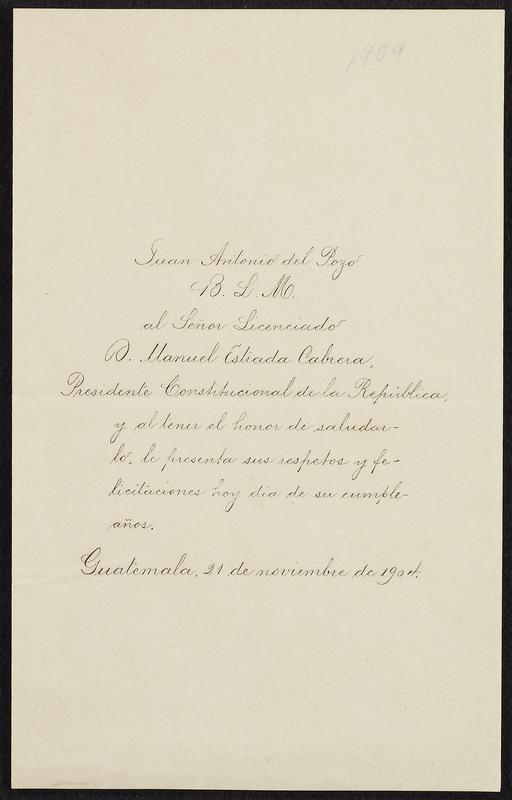 1904
Juan Antonio del Pozo
B. L. M.
al Señor Licenciado
D. Manuel Estrada Cabrera,
Presidente Constitucional de la República,
y al tener el honor de saludar-
lo, le presenta sus respetos y fe-
licitaciones hoy dia de su cumple-
años.
Guatemala, 21 de noviembre de 1904.